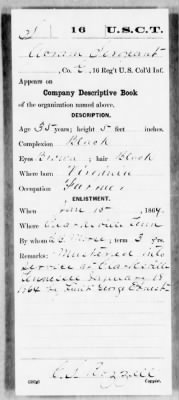 S | 16 | U.S.C.T.
Abram Sergeant
, Co. E, 16 Reg't U. S. Col'd Inf.
Appears on
Company Descriptive Book
of the organization named above.
DESCRIPTION.
Age 35 years; height 5 feet inches.
Complexion Black
Eyes Brown; hair Black
Where born Virginia
Occupation Farmer
ENLISTMENT.
When Jan 15, 1864.
Where Clarksville Tenn
By whom ; term 3 y'rs.
Remarks: Mustered into
service at Clarksville
Tennessee January 18
1864 by Lieut George
Copyist.